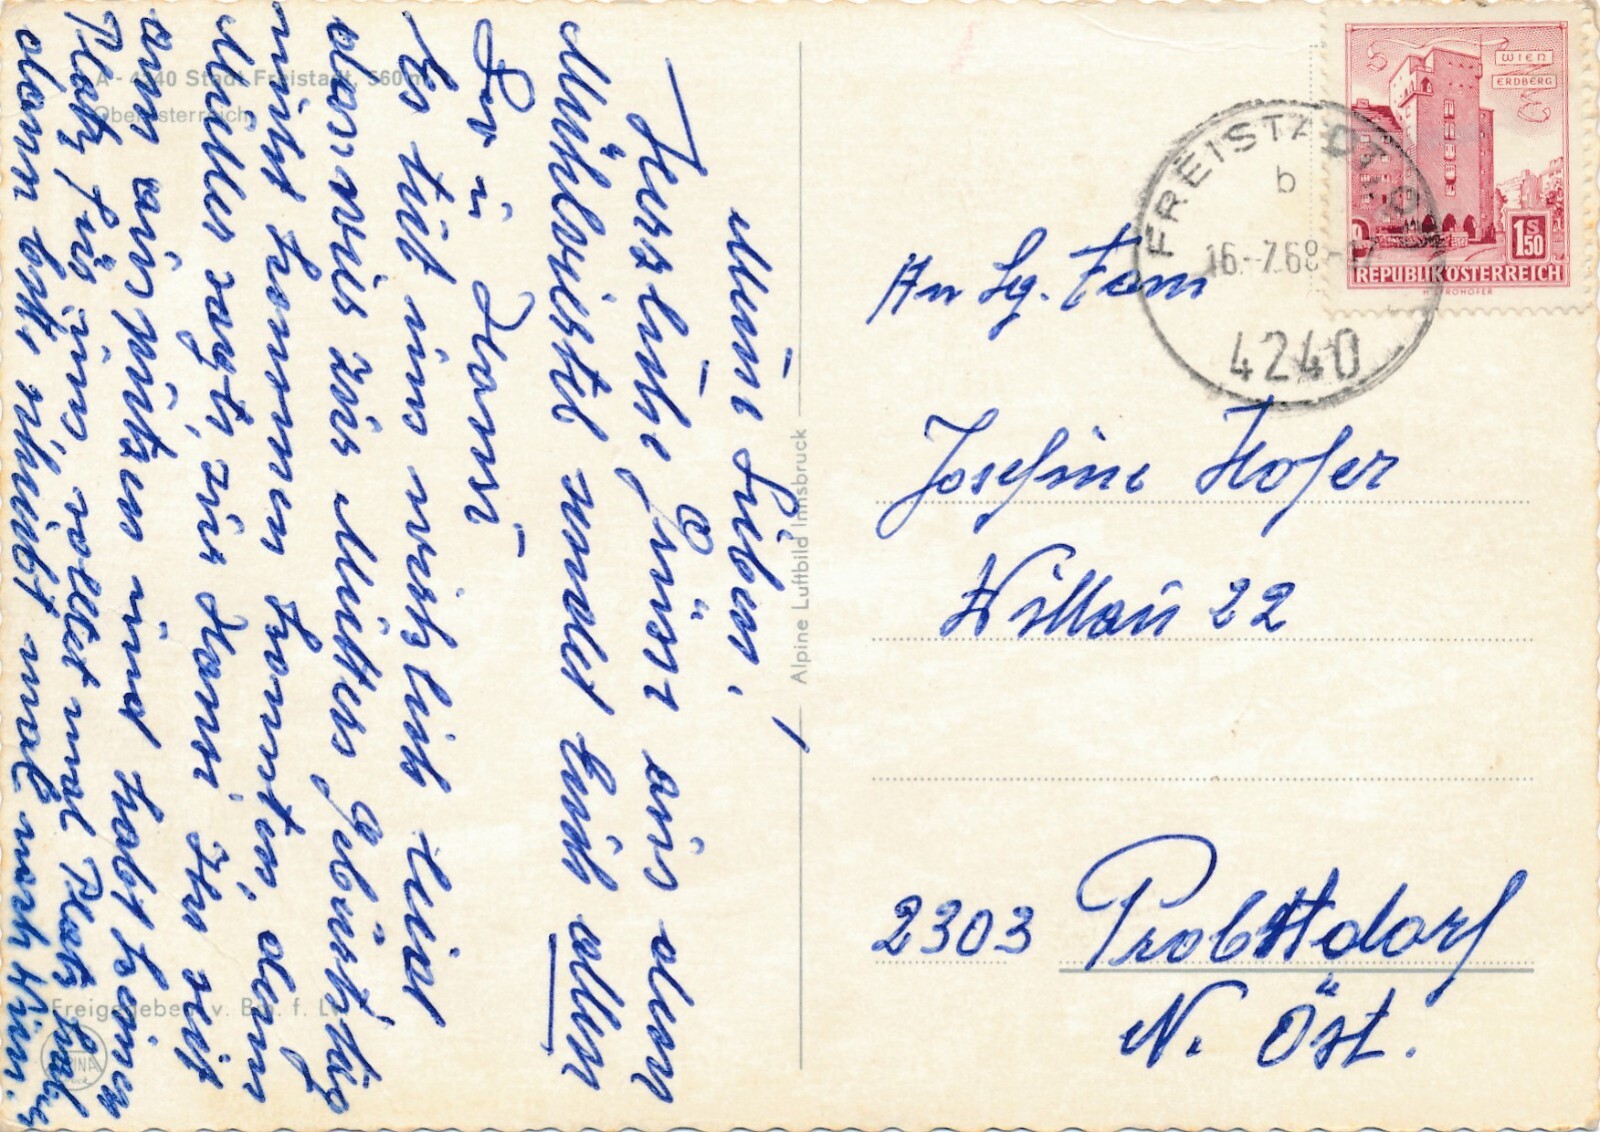 A - 4240 Stadt Freistadt, 560 m
Oberösterreich
Meine Lieben!
Herzliche Grüsse aus dem
Mühlviertel sendet Euch allen
Hansi
Es tut uns wirklich leid
dass wir zur Mutters Geburtstag
nicht kommen konnten, denn
Müller sagt, zur Hansi Ihr seit
am und habt keinen
Platz für uns, solltet mal Platz haben
dann bitte schreibt mal nach Wien.
Freigegeben v. Bm. f. Lv.
ALPINA
Alpine Luftbild Innsbruck
WIEN
ERDBERG
1 S 50
REPUBLIK ÖSTERREICH
FREISTADT, OÖ
b
16.-7.68
4240
An Sg. Fam
Josefine Hofer
Wittau 22
2303 Probstdorf
N. Öst.